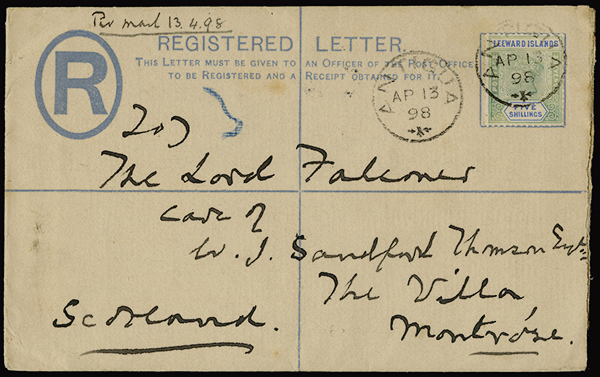 Per mail 13.4.98
R
REGISTERED LETTER.
THIS LETTER MUST BE GIVEN TO AN OFFICER OF THE POST OFFICE
TO BE REGISTERED AND A RECEIPT OBTAINED FOR IT.
LEEWARD ISLANDS
FIVE
SHILLINGS
ANTIGUA
AP 13
98
ANTIGUA
AP 13
98
The Lord Falconer
care of
W. J. Sandford Thomson Esqre
The Villa
Montrose.
Scotland.